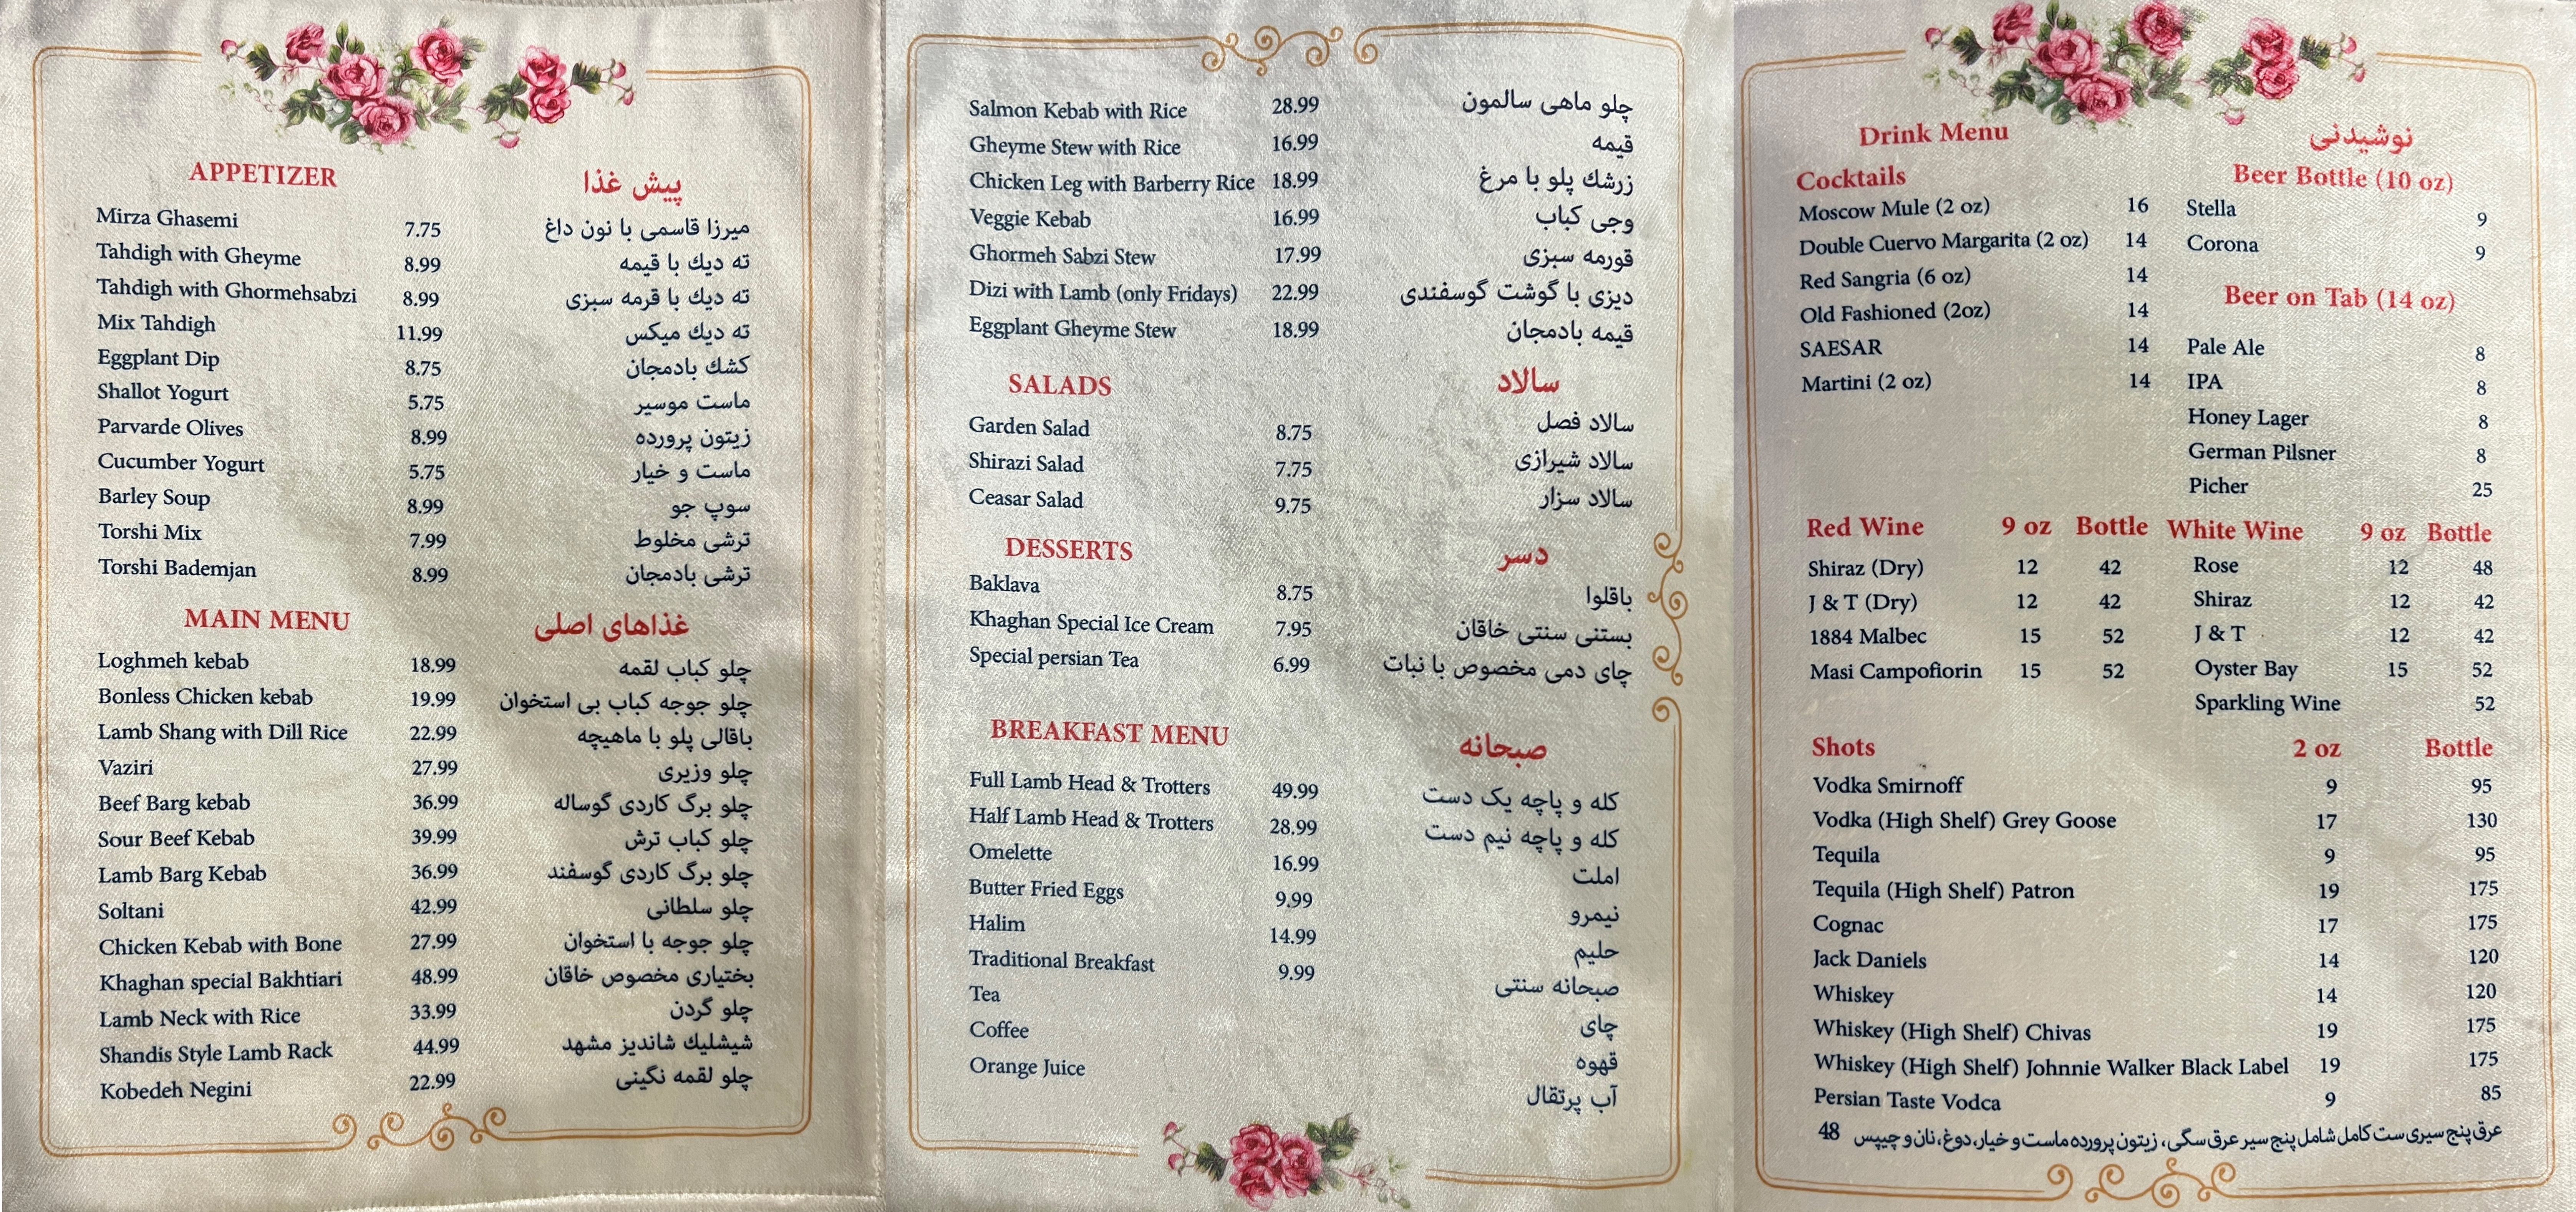 APPETIZER پیش غذا
Mirza Ghasemi 7.75 میرزا قاسمی با نون داغ
Tahdigh with Gheyme 8.99 ته دیك با قیمه
Tahdigh with Ghormehsabzi 8.99 ته دیك با قرمه سبزی
Mix Tahdigh 11.99 ته دیك میكس
Eggplant Dip 8.75 كشك بادمجان
Shallot Yogurt 5.75 ماست موسیر
Parvarde Olives 8.99 زیتون پرورده
Cucumber Yogurt 5.75 ماست و خیار
Barley Soup 8.99 سوپ جو
Torshi Mix 7.99 ترشی مخلوط
Torshi Bademjan 8.99 ترشی بادمجان
MAIN MENU غذاهای اصلی
Loghmeh kebab 18.99 چلو کباب لقمه
Bonless Chicken kebab 19.99 چلو جوجه کباب بی استخوان
Lamb Shang with Dill Rice 22.99 باقالی پلو با ماهیچه
Vaziri 27.99 چلو وزیری
Beef Barg kebab 36.99 چلو برگ کاردی گوساله
Sour Beef Kebab 39.99 چلو کباب ترش
Lamb Barg Kebab 36.99 چلو برگ کاردی گوسفند
Soltani 42.99 چلو سلطانی
Chicken Kebab with Bone 27.99 چلو جوجه با استخوان
Khaghan special Bakhtiari 48.99 بختیاری مخصوص خاقان
Lamb Neck with Rice 33.99 چلو گردن
Shandis Style Lamb Rack 44.99 شیشلیك شاندیز مشهد
Kobedeh Negini 22.99 چلو لقمه نگینی
Salmon Kebab with Rice 28.99 چلو ماهی سالمون
Gheyme Stew with Rice 16.99 قیمه
Chicken Leg with Barberry Rice 18.99 زرشك پلو با مرغ
Veggie Kebab 16.99 وجی کباب
Ghormeh Sabzi Stew 17.99 قورمه سبزی
Dizi with Lamb (only Fridays) 22.99 دیزی با گوشت گوسفندی
Eggplant Gheyme Stew 18.99 قیمه بادمجان
SALADS سالاد
Garden Salad 8.75 سالاد فصل
Shirazi Salad 7.75 سالاد شیرازی
Ceasar Salad 9.75 سالاد سزار
DESSERTS دسر
Baklava 8.75 باقلوا
Khaghan Special Ice Cream 7.95 بستنی سنتی خاقان
Special persian Tea 6.99 چای دمی مخصوص با نبات
BREAKFAST MENU صبحانه
Full Lamb Head & Trotters 49.99 کله و پاچه یک دست
Half Lamb Head & Trotters 28.99 کله و پاچه نیم دست
Omelette 16.99 املت
Butter Fried Eggs 9.99 نیمرو
Halim 14.99 حلیم
Traditional Breakfast 9.99 صبحانه سنتی
Tea چای
Coffee قهوه
Orange Juice آب پرتقال
Drink Menu نوشیدنی
Cocktails
Moscow Mule (2 oz) 16
Double Cuervo Margarita (2 oz) 14
Red Sangria (6 oz) 14
Old Fashioned (2oz) 14
SAESAR 14
Martini (2 oz) 14
Beer Bottle (10 oz)
Stella 9
Corona 9
Beer on Tab (14 oz)
Pale Ale 8
IPA 8
Honey Lager 8
German Pilsner 8
Picher 25
Red Wine 9 oz Bottle
Shiraz (Dry) 12 42
J & T (Dry) 12 42
1884 Malbec 15 52
Masi Campofiorin 15 52
White Wine 9 oz Bottle
Rose 12 48
Shiraz 12 42
J & T 12 42
Oyster Bay 15 52
Sparkling Wine 52
Shots 2 oz Bottle
Vodka Smirnoff 9 95
Vodka (High Shelf) Grey Goose 17 130
Tequila 9 95
Tequila (High Shelf) Patron 19 175
Cognac 17 175
Jack Daniels 14 120
Whiskey 14 120
Whiskey (High Shelf) Chivas 19 175
Whiskey (High Shelf) Johnnie Walker Black Label 19 175
Persian Taste Vodca 9 85
عرق پنج سیری ست کامل شامل پنج سیر عرق سگی، زیتون پرورده ماست و خیار، دوغ، نان و چیپس 48